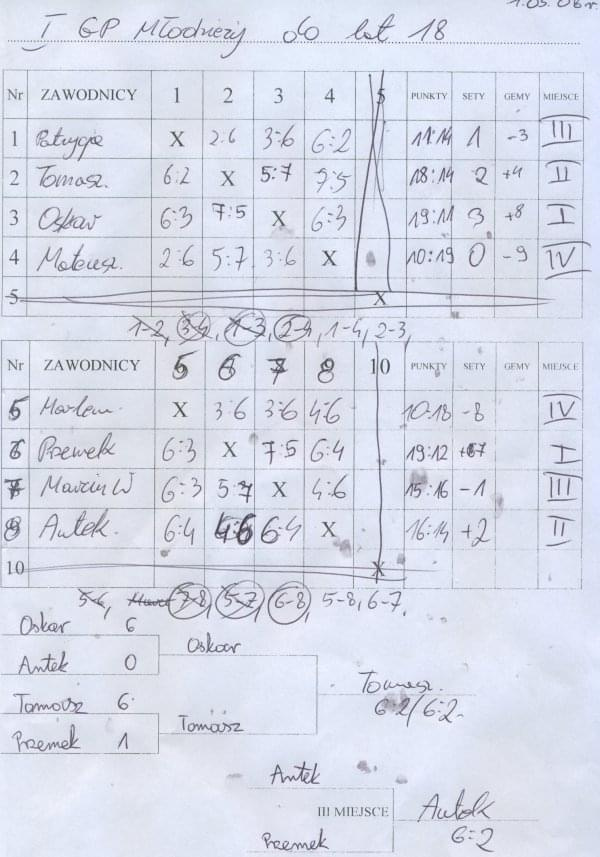 1.05.08 r.
I GP Młodzieży do lat 18
Nr ZAWODNICY 1 2 3 4 5 PUNKTY SETY GEMY MIEJSCE
1 Patrycja X 2:6 3:6 6:2 11:14 1 -3 III
2 Tomasz. 6:2 X 5:7 7:5 18:14 2 +4 II
3 Oskar 6:3 7:5 X 6:3 19:11 3 +8 I
4 Mateusz. 2:6 5:7 3:6 X 10:19 0 -9 IV
5 X
1-2, 3-4, 1-3, 2-4, 1-4, 2-3,
Nr ZAWODNICY 5 6 7 8 10 PUNKTY SETY GEMY MIEJSCE
5 X 3:6 3:6 4:6 10:18 -8 IV
6 Przemek 6:3 X 7:5 6:4 19:12 +7 I
7 Marcin W 6:3 5:7 X 4:6 15:16 -1 III
8 Antek. 6:4 4:6 6:4 X 16:14 +2 II
10 X
5-6, 7-8, 5-7, 6-8, 5-8, 6-7,
Oskar 6
Oskar
Antek 0
Tomasz.
6:2/6:2
Tomasz 6
Tomasz
Przemek 1
Antek
III MIEJSCE Antek
6:2
Przemek